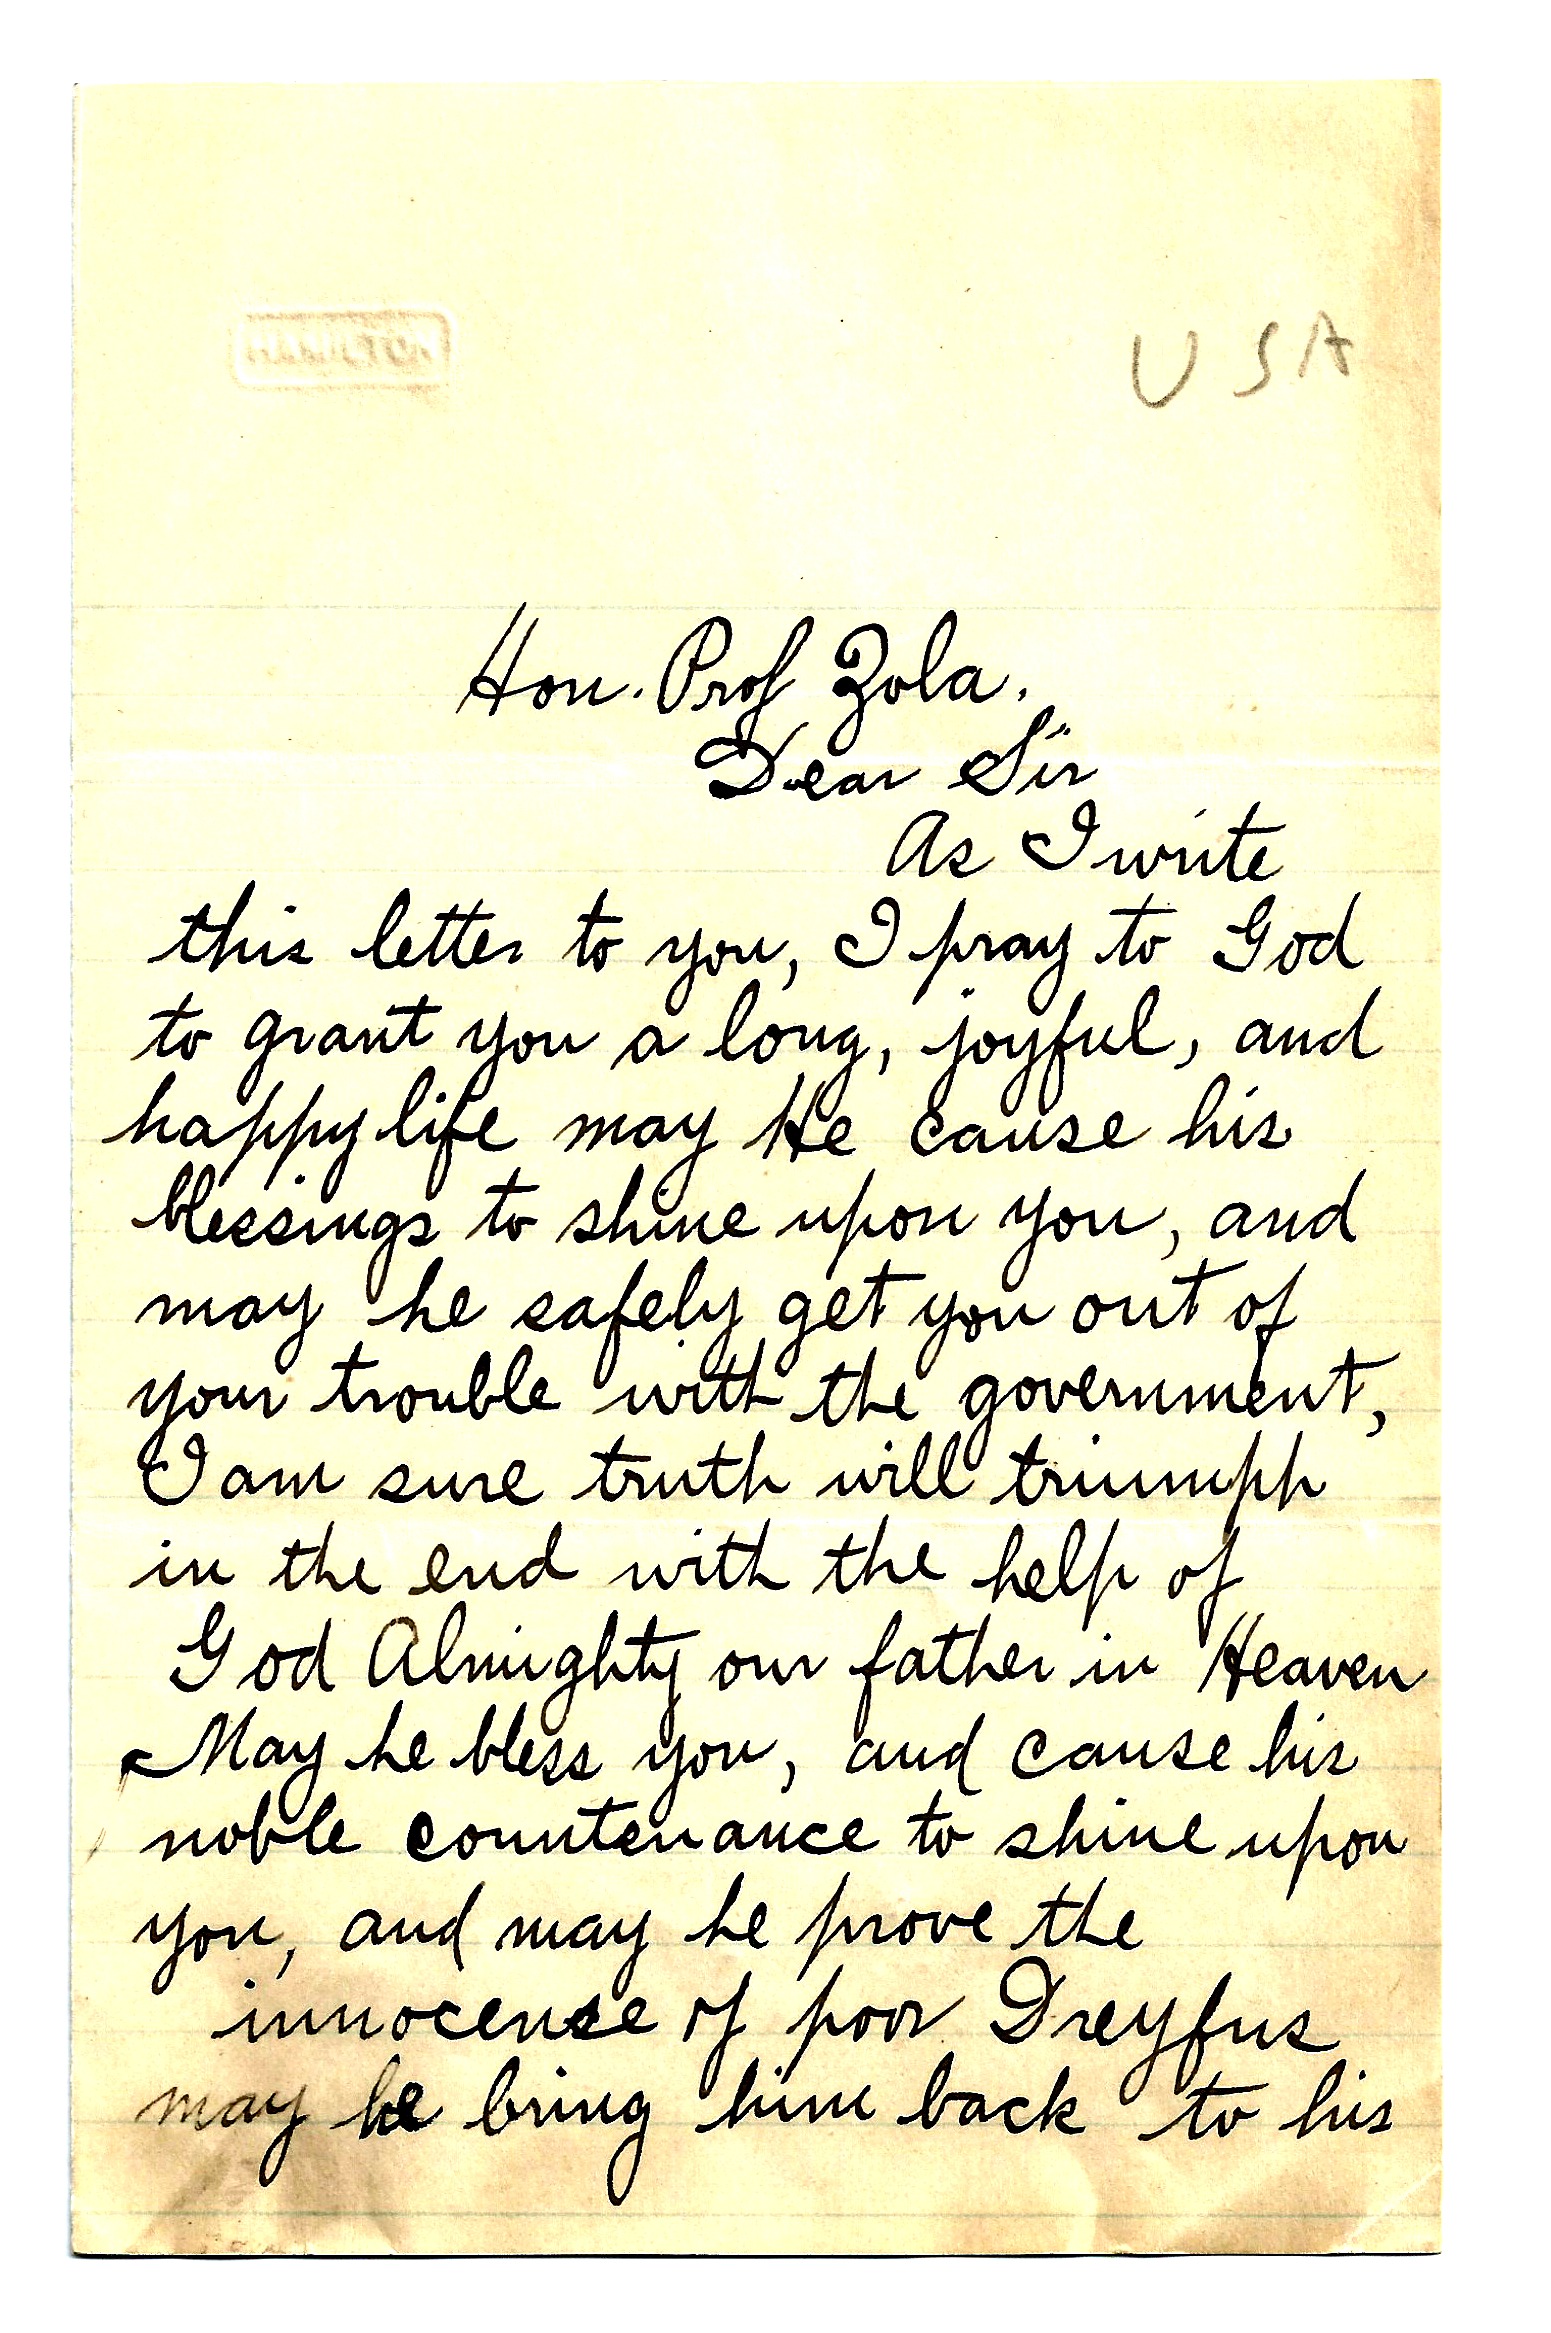 HAMILTON
USA
Hon. Prof Zola.
Dear Sir
As I write
this letter to you, I pray to God
to grant you a long, joyful, and
happy life may He cause his
blessings to shine upon you, and
may he safely get you out of
your trouble with the government,
I am sure truth will triumph
in the end with the help of
God Almighty our father in Heaven
May he bless you, and cause his
noble countenance to shine upon
you, and may he prove the
innocense of poor Dreyfus
may he bring him back to his